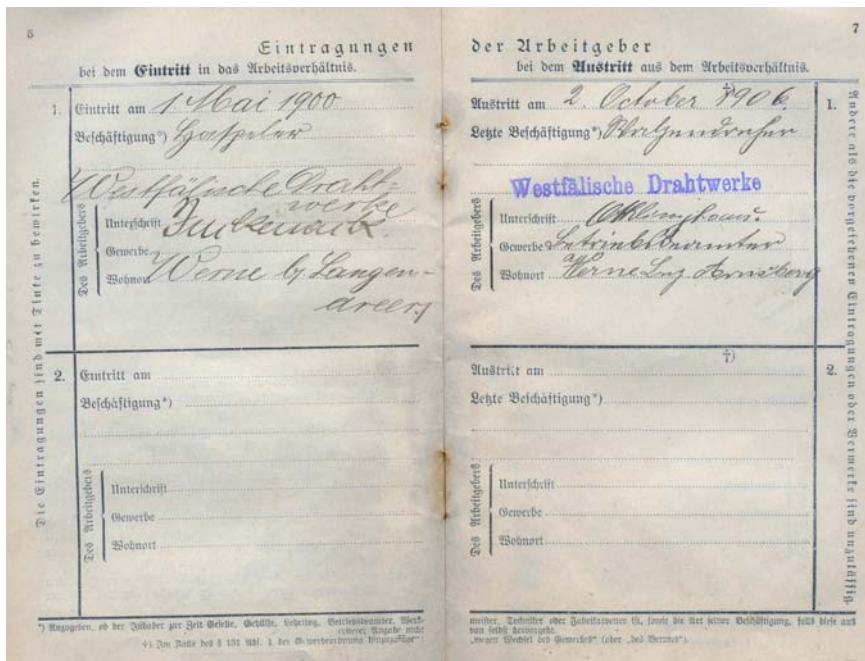 6
Eintragungen
bei dem Eintritt in das Arbeitsverhältnis.
Die Eintragungen sind mit Tinte zu bewirken.
1. Eintritt am 1. Mai 1900
Beschäftigung*) Haspeler
Westfälische Draht-
werke
Des Arbeitgebers
Unterschrift
Gewerbe
Wohnort Werne b/ Langen-
dreer
2. Eintritt am
Beschäftigung*)
Des Arbeitgebers
Unterschrift
Gewerbe
Wohnort
*) Anzugeben, ob der Inhaber zur Zeit Geselle, Gehülfe, Lehrling, Betriebsbeamter, Werk-
†) Im Falle des § 131 Abs. 1 der Gewerbeordnung
7
der Arbeitgeber
bei dem Austritt aus dem Arbeitsverhältnis.
†)
Austritt am 2. October 1906. 1.
Letzte Beschäftigung*) Walzendreher
Westfälische Drahtwerke
Des Arbeitgebers
Unterschrift
Gewerbe Betriebsbeamter
Wohnort Werne Arnsberg
†)
Austritt am 2.
Letzte Beschäftigung*)
Des Arbeitgebers
Unterschrift
Gewerbe
Wohnort
Andere als die vorgesehenen Eintragungen oder Vermerke sind unzulässig.
meister, Techniker oder Fabrikarbeiter ist, sowie die Art seiner Beschäftigung, falls diese aus
von selbst hervorgeht.
„wegen Wechsel des Gewerbes“ (oder „des Berufes“).